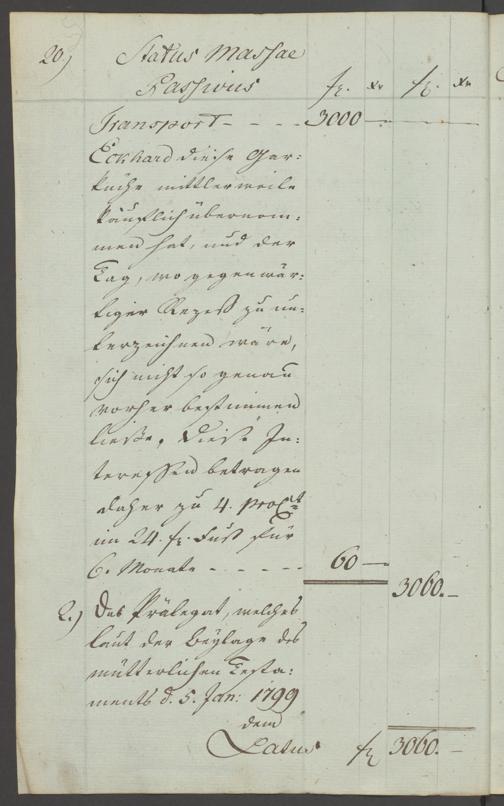 20.) Status Massae
Passivus
fr. xr fr. xr
Transport - - - - 3000 —
Eckhard diese Gar=
küche mittlerweile
käuflich übernom=
men hat, und der
Tag, wo gegenwär=
tiger Rezess zu un=
terzeichnen wäre,
sich nicht so genau
vorher bestimmen
liesse. Diese In=
teressen betragen
daher zu 4. proCt
im 24. fr. Fuss für
6. Monate - - - - - 60 —
3060. —
2.) Das Prälegat, welches
laut der Beylage des
mütterlichen Testa=
ments d. 5. Jan: 1799
dem
Latus fr 3060. —